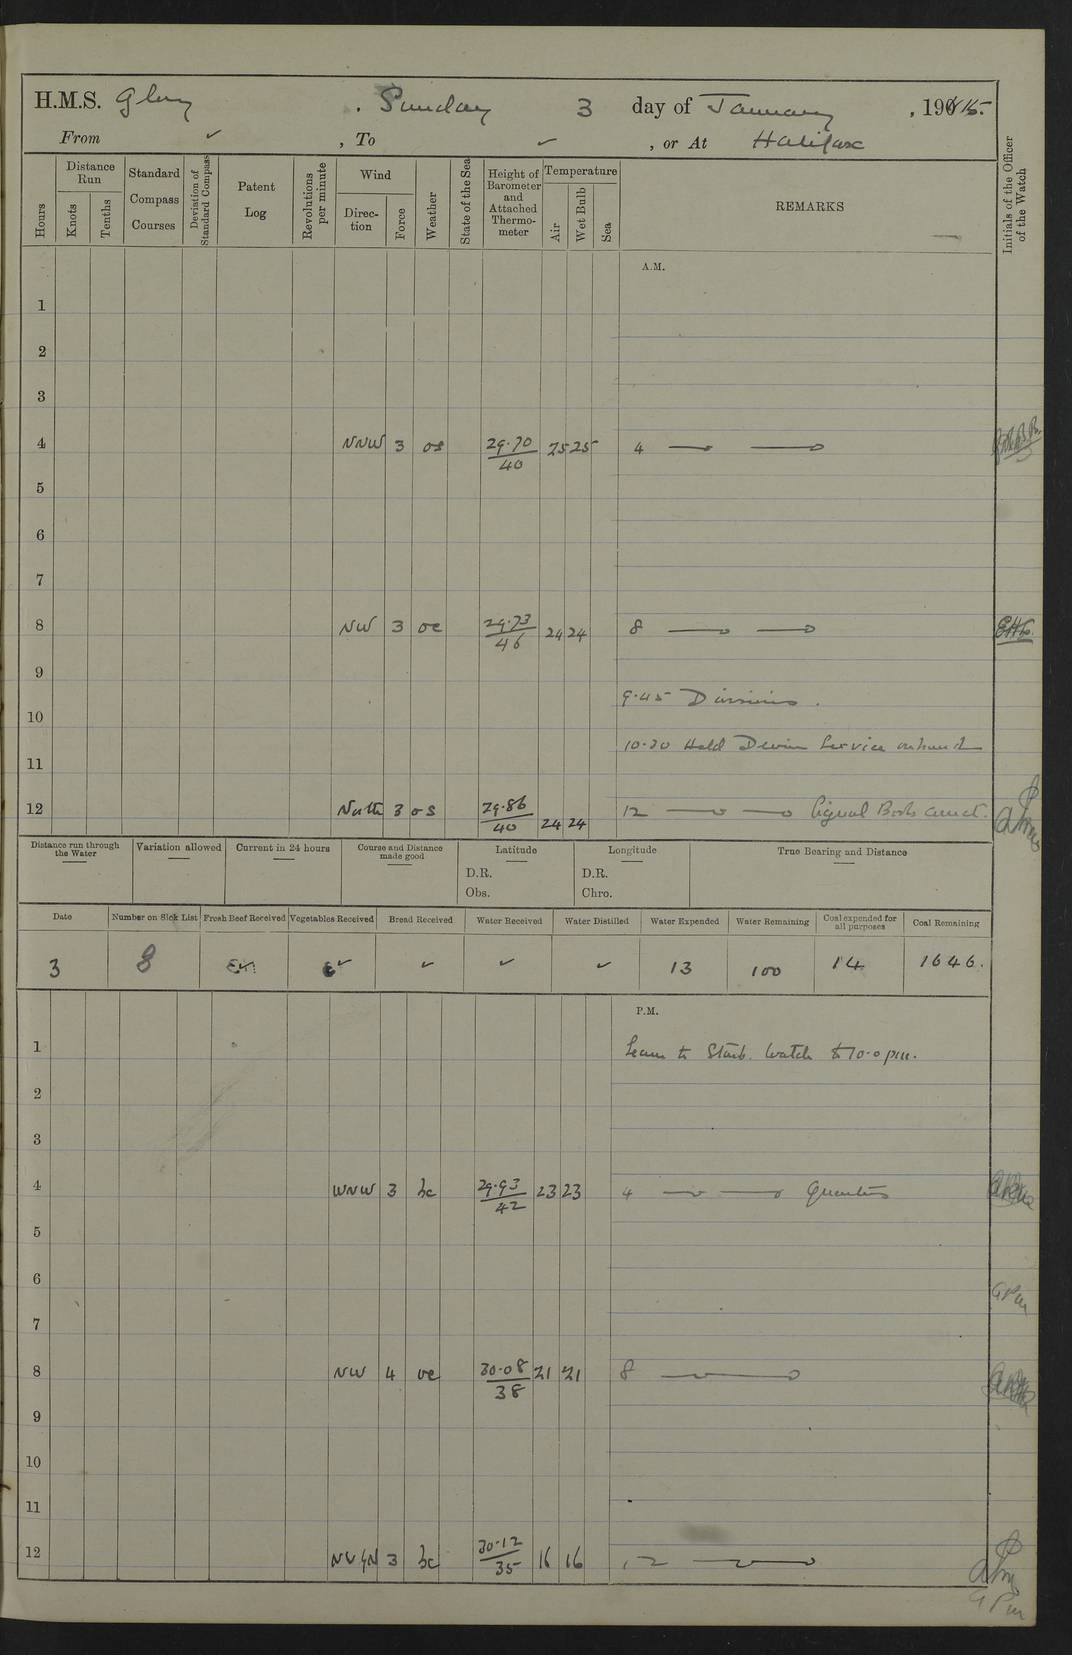 H.M.S. Glory , Sunday 3 day of January , 1915.
From ✓ , To ✓ , or At Halifax
Hours
Distance Run
Knots
Tenths
Standard Compass Courses
Deviation of Standard Compass
Patent Log
Revolutions per minute
Wind
Direction
Force
Weather
State of the Sea
Height of Barometer and Attached Thermometer
Temperature
Air
Wet Bulb
Sea
REMARKS
Initials of the Officer of the Watch
A.M.
1
2
3
4 NNW 3 os 29.70/40 25 25 4
5
6
7
8 NW 3 oc 29.73/46 24 24 8
9
9.45 Divisions.
10
10.30 Held Devine Service onboard
11
12 North 3 os 29.86/40 24 24 12 Signal Books correct.
Distance run through the Water
Variation allowed
Current in 24 hours
Course and Distance made good
Latitude
D.R.
Obs.
Longitude
D.R.
Chro.
True Bearing and Distance
Date
Number on Sick List
Fresh Beef Received
Vegetables Received
Bread Received
Water Received
Water Distilled
Water Expended
Water Remaining
Coal expended for all purposes
Coal Remaining
3 8 ✓ ✓ ✓ 13 100 14 1646.
P.M.
1 Leave to Starb. Watch to 10.0 pm.
2
3
4 WNW 3 bc 29.93/42 23 23 4 Quarters
5
6
7
8 NW 4 oc 30.08/38 21 21 8
9
10
11
12 NW/N 3 bc 30.12/35 16 16 12